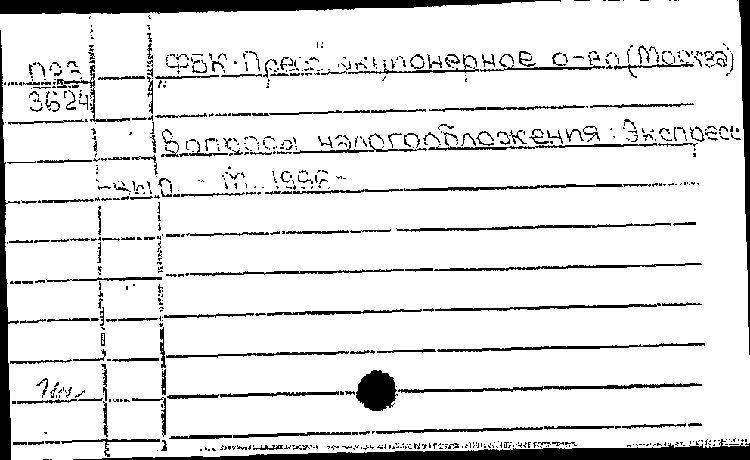 П23 "ФБК-Пресс", акционерное о-во (Москва)
3624
Вопросы налогообложения: Экспресс
-вып. - М., 1996-